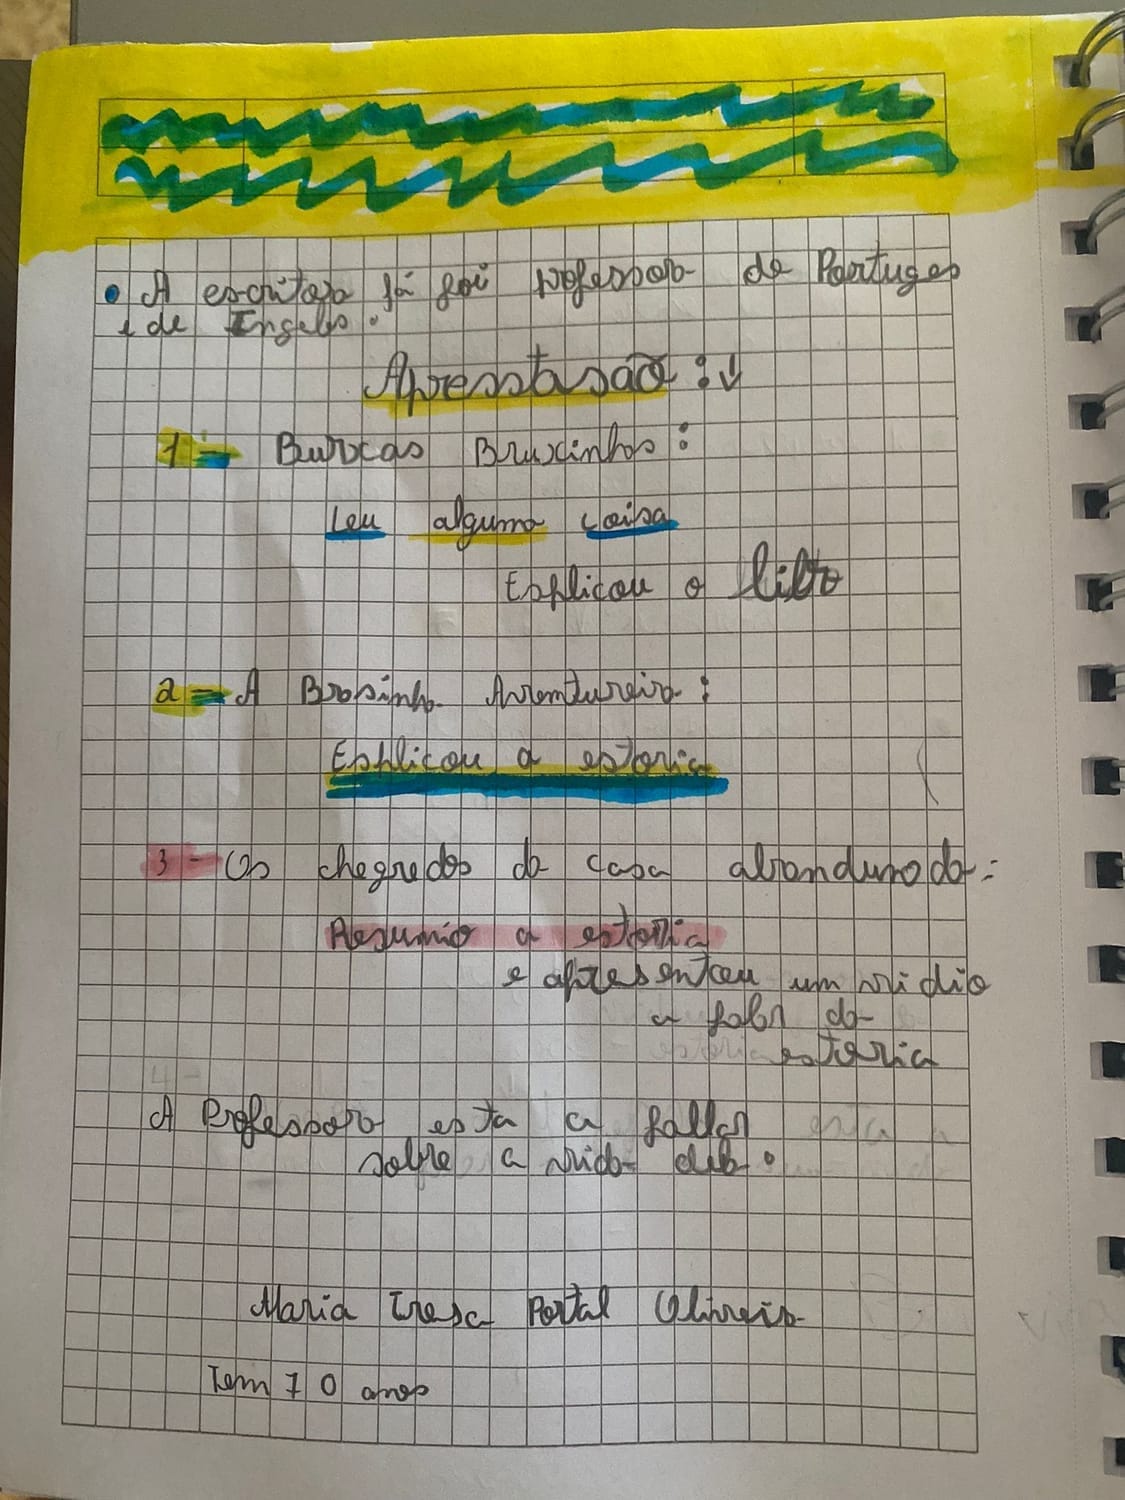 • A escritora já foi professora de Portuges
e de Ingels.
Apresstasão :↓
1 = Burxas Bruxinhas :
Leu alguma coisa
Esplicou o libro
2 = A Brosinha Aventureira :
Esplicou a estoria
3 - Os chegredos da casa abandunada :
Resumio a estoria
e apresenteu um vidio
a falar da
estoria
A Professora esta a fallar
sobre a vida dela.
Maria Tresa Portal Oliveira
Tem 70 anos